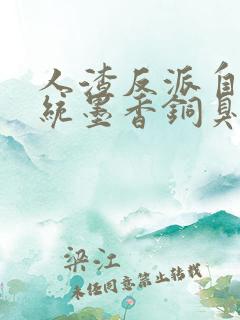 人渣反派自
統墨香銅臭
梁江
未经同意禁止转载